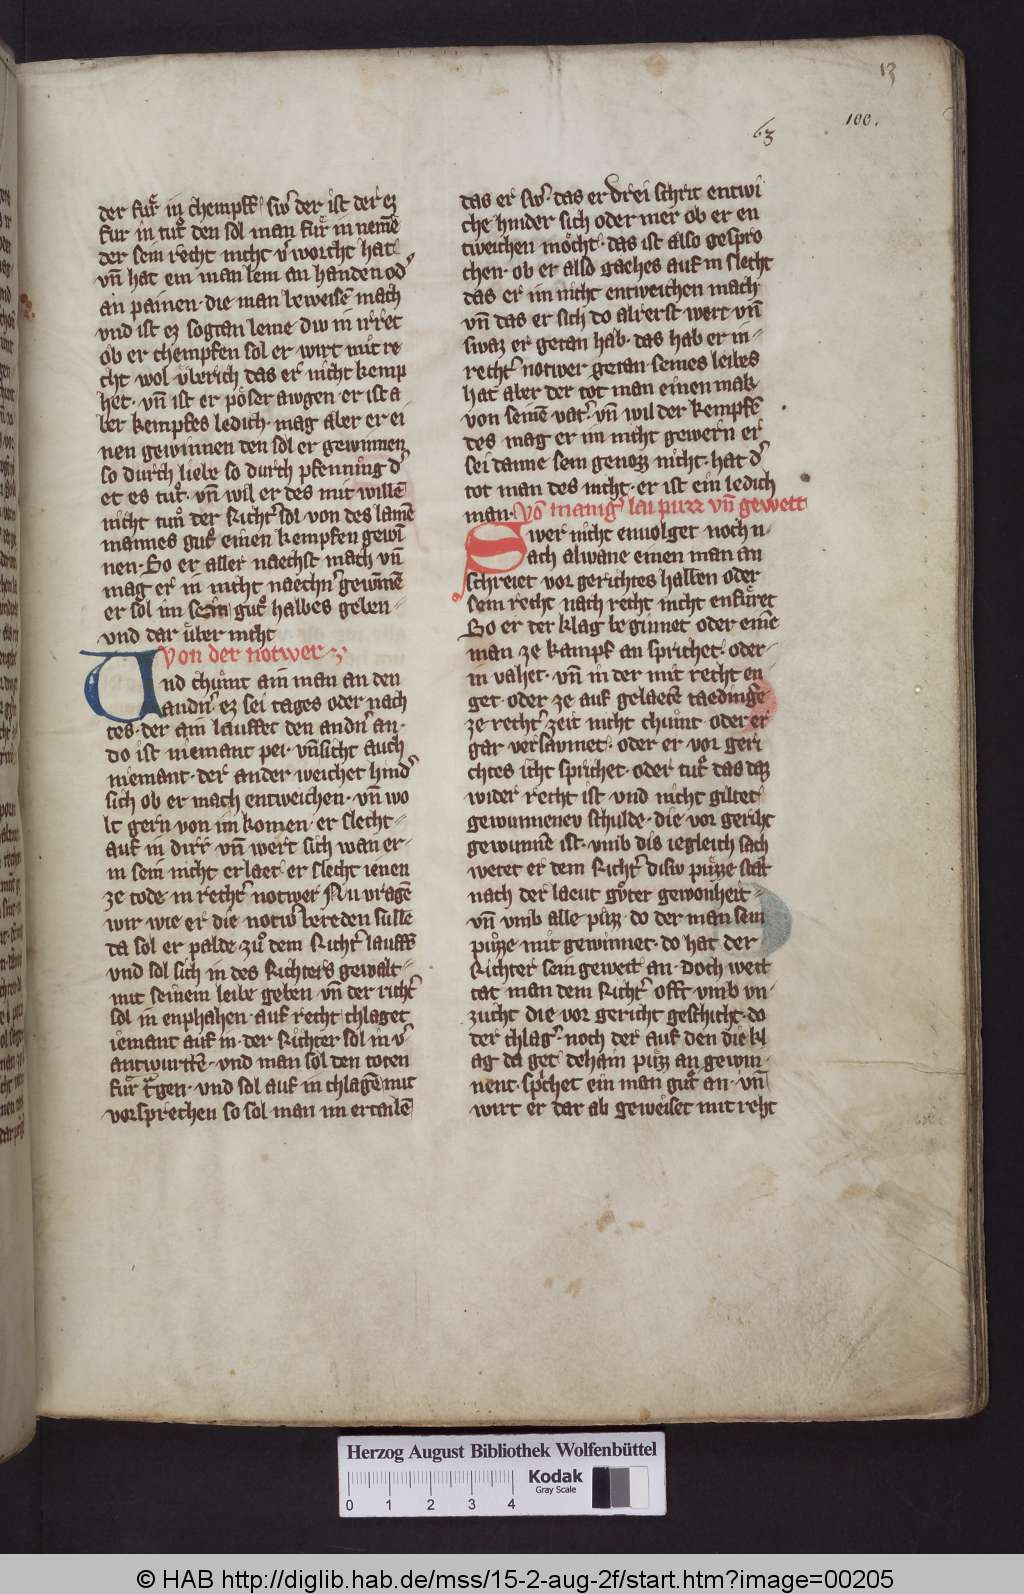 13
100.
63
der fuͤr in chempff swˀ der ist der ez
fur in tuͦt den sol man fuͤr in nemē
der sein recht nicht vˀworcht hat
vn̄ hat ein man lem an handen odˀ
an painen · die man beweisē mach
vnd ist ez sogtan leme diw in irret
ob er chempfen sol er wirt mit re
cht wol vͤberich das er nicht kemp
fet · vn̄ ist er poͤser awgen · er ist a
ber kempfes ledich · mag aber er ei
nen gewinnen den sol er gewinnen
so durch liebe so durch pfenning dˀ
et es tuͦt · vn̄ wil er des mit willē
nicht tuͦn der Richtˀ sol von des lamē
mannes guͦt einen kempfen gewī
nen · So er aller naechst mach vn̄
mag er in nicht naechnˀ gewinnē
er sol im sein guͦt halbes geben
vnd dar uͤber nicht
von der notwer
Und chuͤmt ain man an den
andnˀ ez sei tages oder nach
tes · der ain lauffet den andnˀ an ·
do ist niemant pei · vn̄ sicht auch
niemant · der ander weichet hindˀ
sich ob er mach entweichen · vn̄ wo
lt gern von im komen · er slecht
auf in dirr vn̄ wert sich wan er
in sein nicht erlaet · er slecht ienen
ze tode in rechtˀ notwer Nu vragē
wir wie er die notwˀ bereden sulle
da sol er palde zuͦ dem Richtˀ lauffē
vnd sol sich in des Richters gewalt
mit seinem leibe geben vn̄ der richtˀ
sol in enphahen · auf recht chlaget
iemant auf in · der Richter sol in vˀ
antwurttē · vnd man sol den toten
fuͤr Tragen · vnd sol auf in chlagē mit
vorsprechen so sol man im ertailē
das er swˀ · das er drei schrit entwi
che hinder sich oder mer ob er en
tweichen moͤcht · das ist also gespro
chen · ob er also gaehes auf in slecht
das er im nicht entweichen mach
vn̄ das er sich do alrerst wert vn̄
swaz er getan hab · das hab er in
rechtˀ notwer getan · seines leibes
hat aber der tot man einen mak
von seinē vatˀ vn̄ wil der kempfē
des mag er im nicht gewern er
sei danne sein genozz nicht · hat dˀ
tot man des nicht · er ist ein ledich
man · Vō manigˀ lai puzz vn̄ gewett
Swer nicht enuolget noch n
ach alwane einen man an
schreiet vor gerichtes hallen oder
sein recht nach recht nicht enfuͤret
So er der klag beginnet oder einē
man ze kampf an sprichet · oder
in vahet · vn̄ in der mit recht en
get · oder ze auf gelaetē taedinge
ze rechtˀ zeit nicht chuͤmt oder er
gar versaumet · oder er vor geri
chtes icht sprichet · oder tuͦt das daz
wider recht ist vnd nicht giltet
gewunnenev schulde · die vor geriht
gewunnē ist · vmb dis iegleich sach
wetet er dem Richtˀ disw puͤzze stat
nach der laeut guͦter gewonheit
vn̄ vmb alle puͤzz · do der man sein
puͤzze mit gewinnet · do hat der
Richter sein gewett an · Doch wett
tat man dem Richtˀ offt vmb vn
zucht die vor gericht geschicht · do
der chlagˀ · noch der auf den die kl
ag da get dehain puͤzz an gewin
nent · sprˀchet ein man guͦt an · vn̄
wirt er dar ab geweiset mit reht
Herzog August Bibliothek Wolfenbüttel
0 1 2 3 4
Kodak
Gray Scale
© HAB http://diglib.hab.de/mss/15-2-aug-2f/start.htm?image=00205